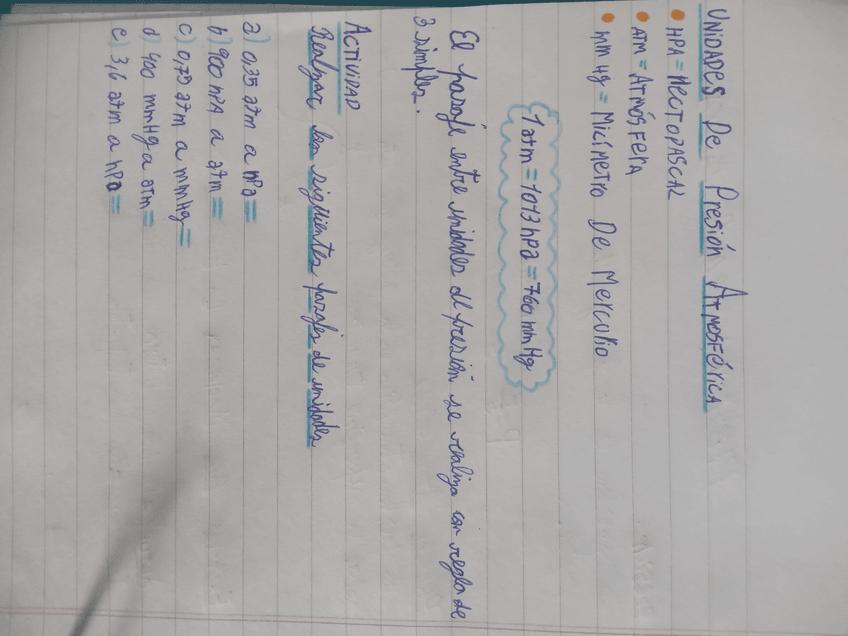 UNIDADES De Presión ATMOSFÉRICA
• HPA = HECTOPASCAL
• ATM = ATMÓSFERA
• mm Hg = Micímetro De Mercurio
1 atm = 1013 hPa = 760 mm Hg
El pasaje entre unidades de presión se realiza con regla de
3 simples.
ACTIVIDAD
Realizar los siguientes pasajes de unidades
a) 0,35 atm a hPa =
b) 900 hPA a atm =
c) 0,75 atm a mmHg =
d) 400 mmHg a atm =
e) 3,6 atm a hPa =